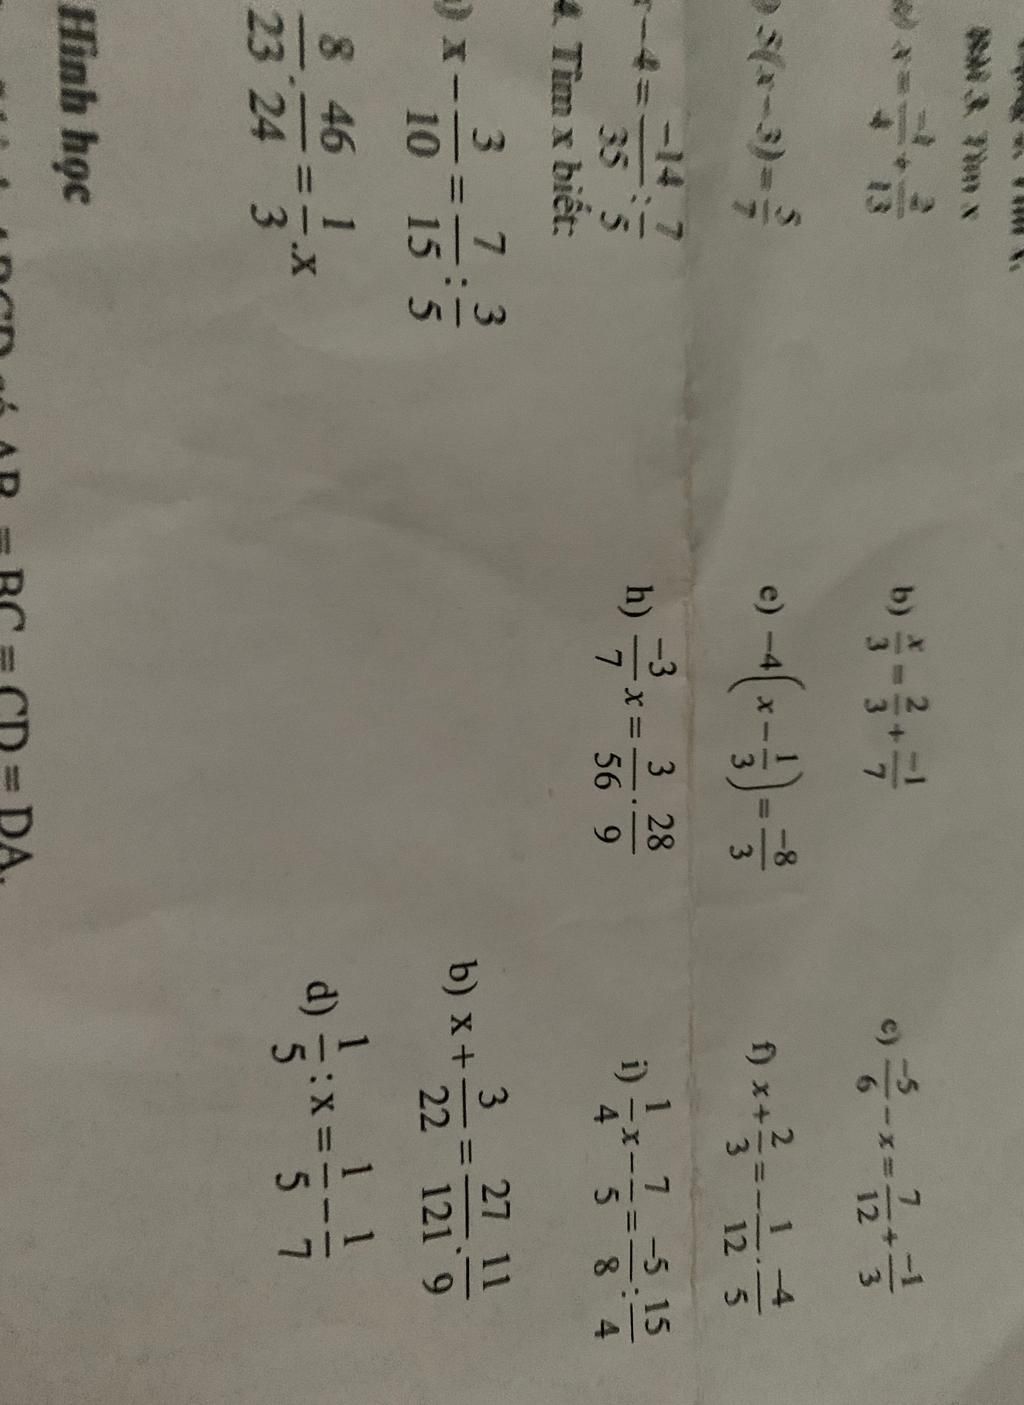 Bài 3. Tìm x
a) x = \frac{-1}{4} + \frac{2}{13} b) \frac{x}{3} = \frac{2}{3} + \frac{-1}{7} c) \frac{-5}{6} - x = \frac{7}{12} + \frac{-1}{3}
5(x - 3) = \frac{5}{7} e) -4\left(x - \frac{1}{3}\right) = \frac{-8}{3} f) x + \frac{2}{3} = -\frac{1}{12} . \frac{-4}{5}
- 4 = \frac{-14}{35} : \frac{7}{5} h) \frac{-3}{7} x = \frac{3}{56} . \frac{28}{9} i) \frac{1}{4} x - \frac{7}{5} = \frac{-5}{8} : \frac{15}{4}
4. Tìm x biết:
) x - \frac{3}{10} = \frac{7}{15} : \frac{3}{5} b) x + \frac{3}{22} = \frac{27}{121} . \frac{11}{9}
\frac{8}{23} . \frac{46}{24} = \frac{1}{3} .x d) \frac{1}{5} : x = \frac{1}{5} - \frac{1}{7}
Hình học
ABCD có AB = BC = CD = DA.